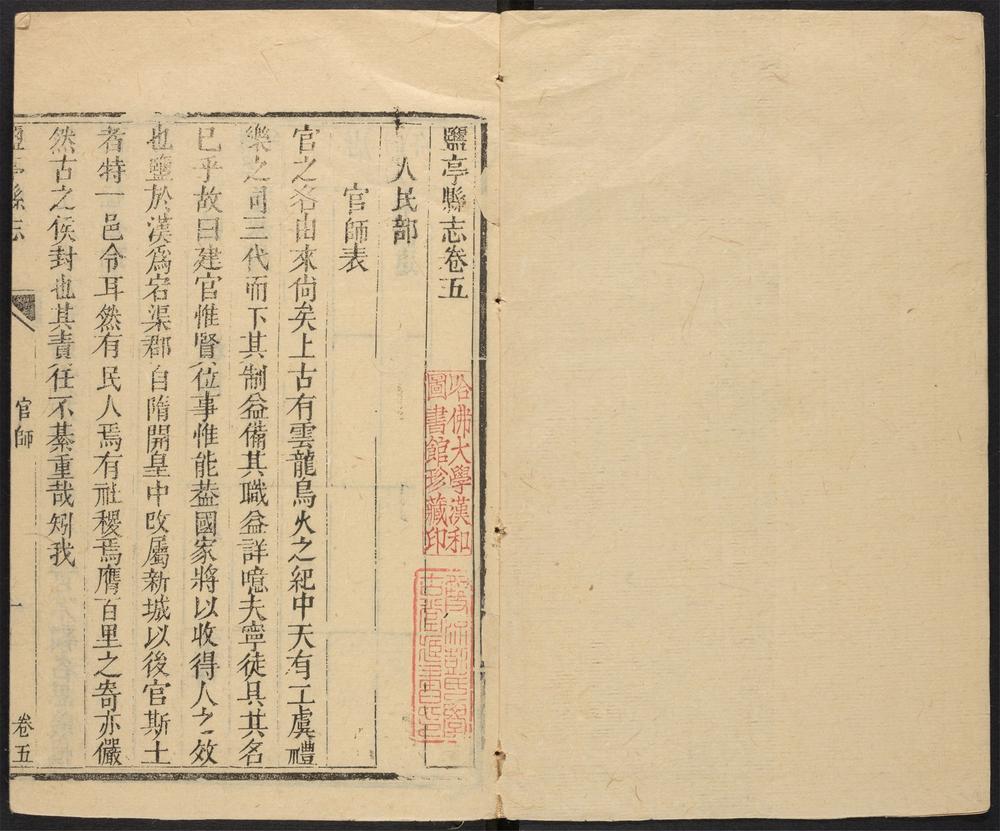 鹽亭縣志卷五
人民部
官師表
官之名由來尙矣上古有雲龍鳥火之紀中天有工虞禮
樂之司三代而下其制益備其職益詳噫夫寧徒具其名
已乎故曰建官惟賢位事惟能葢國家將以收得人之效
也鹽於漢爲宕渠郡自隋開皇中改屬新城以後官斯土
者特一邑令耳然有民人焉有社稷焉膺百里之寄亦儼
然古之侯封也其責任不綦重哉矧我
鹽亭縣志
官師
一
卷五
哈佛大學漢和
圖書館珍藏印